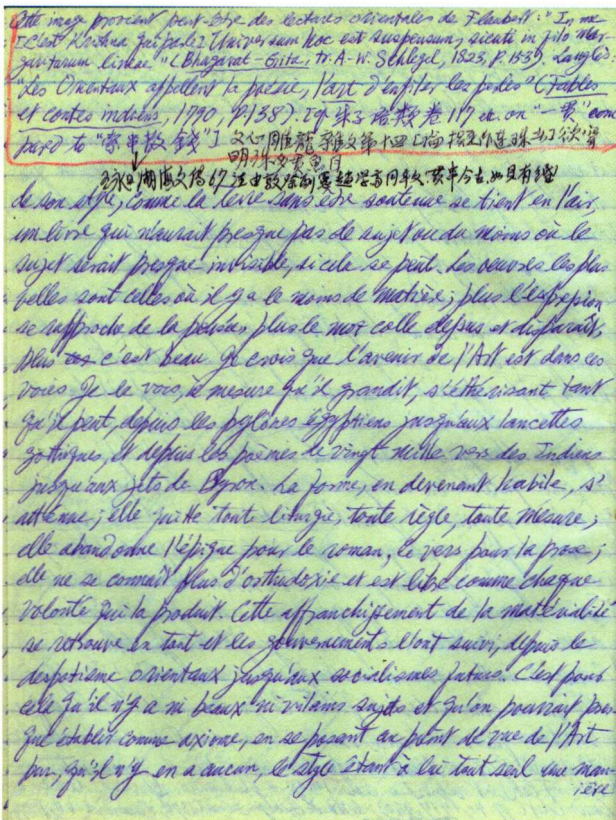 Cette image provient peut-être des lectures orientales de Flaubert: "In me
[C'est Krishna qui parle] Universum hoc est suspensum, sicuti in filo mar-
garitarum lineae" (Bhagavat-Gita, tr. A-W. Schlegel, 1823, p.153). Langlès:
"Les Orientaux appellent la poésie, l'art d'enfiler les perles" (Fables
et contes indiens, 1790, p.138). 117 on "一貫" com
pared to "索串散錢"] 文心雕龍雜文第十四
明珠
de son style, comme la terre sans être soutenue se tient en l'air,
un livre qui n'aurait presque pas de sujet ou du moins où le
sujet serait presque invisible, si cela se peut. Les oeuvres les plus
belles sont celles où il y a le moins de matière; plus l'expression
se rapproche de la pensée, plus le mot colle dessus et disparaît,
plus c'est beau. Je crois que l'avenir de l'Art est dans ces
voies. Je le vois, à mesure qu'il grandit, s'éthérisant tant
qu'il peut, depuis les pylônes égyptiens jusqu'aux lancettes
gothiques, et depuis les poèmes de vingt mille vers des Indiens
jusqu'aux jets de Byron. La forme, en devenant habile, s'
atténue; elle quitte tout liturgie, toute règle, toute mesure;
elle abandonne l'épique pour le roman, le vers pour la prose;
elle ne se connaît plus d'orthodoxie et est libre comme chaque
volonté qui la produit. Cette affranchissement de la matérialité
se retrouve en tout et les gouvernements l'ont suivi, depuis le
despotisme orientaux jusqu'aux socialismes futurs. C'est pour
cela qu'il n'y a ni beaux ni vilains sujets et qu'on pourrait pres
que établir comme axiome, en se posant au point de vue de l'Art
pur, qu'il n'y en a aucun, le style étant à lui tout seul une man-
ière